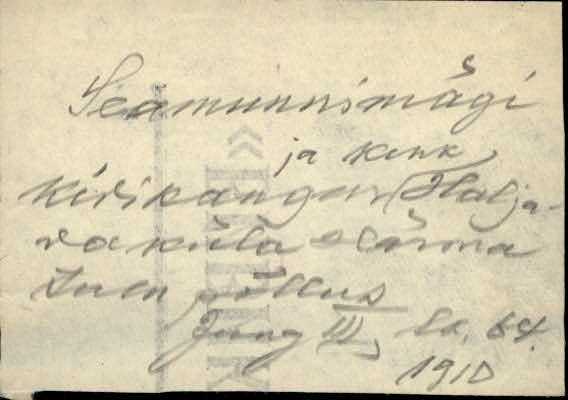 Seamunnimägi
ja kink
Kirikangur (Halja-
vaküla Särma
põllus
Jung III, lk. 64.
1910